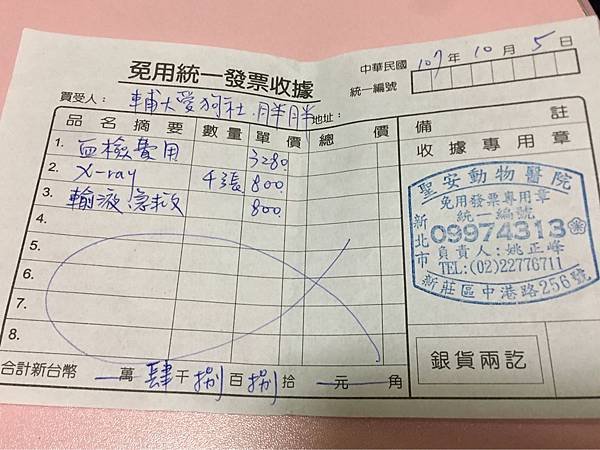 免用統一發票收據
中華民國 107 年 10 月 5 日
統一編號
買受人： 輔大愛狗社.胖胖 地址：
品名摘要 數量 單價 總價 備註
1. 血檢費用 3280.
2. X-ray 4張 800.
3. 輸液急救 800.
4.
5.
6.
7.
8.
合計新台幣 一 萬 肆 千 捌 百 捌 拾 一 元 一 角
收據專用章
聖安動物醫院
免用發票專用章
統一編號
09974313
負責人：姚正峰
TEL:(02)22776711
新北市
新莊區中港路256號
銀貨兩訖